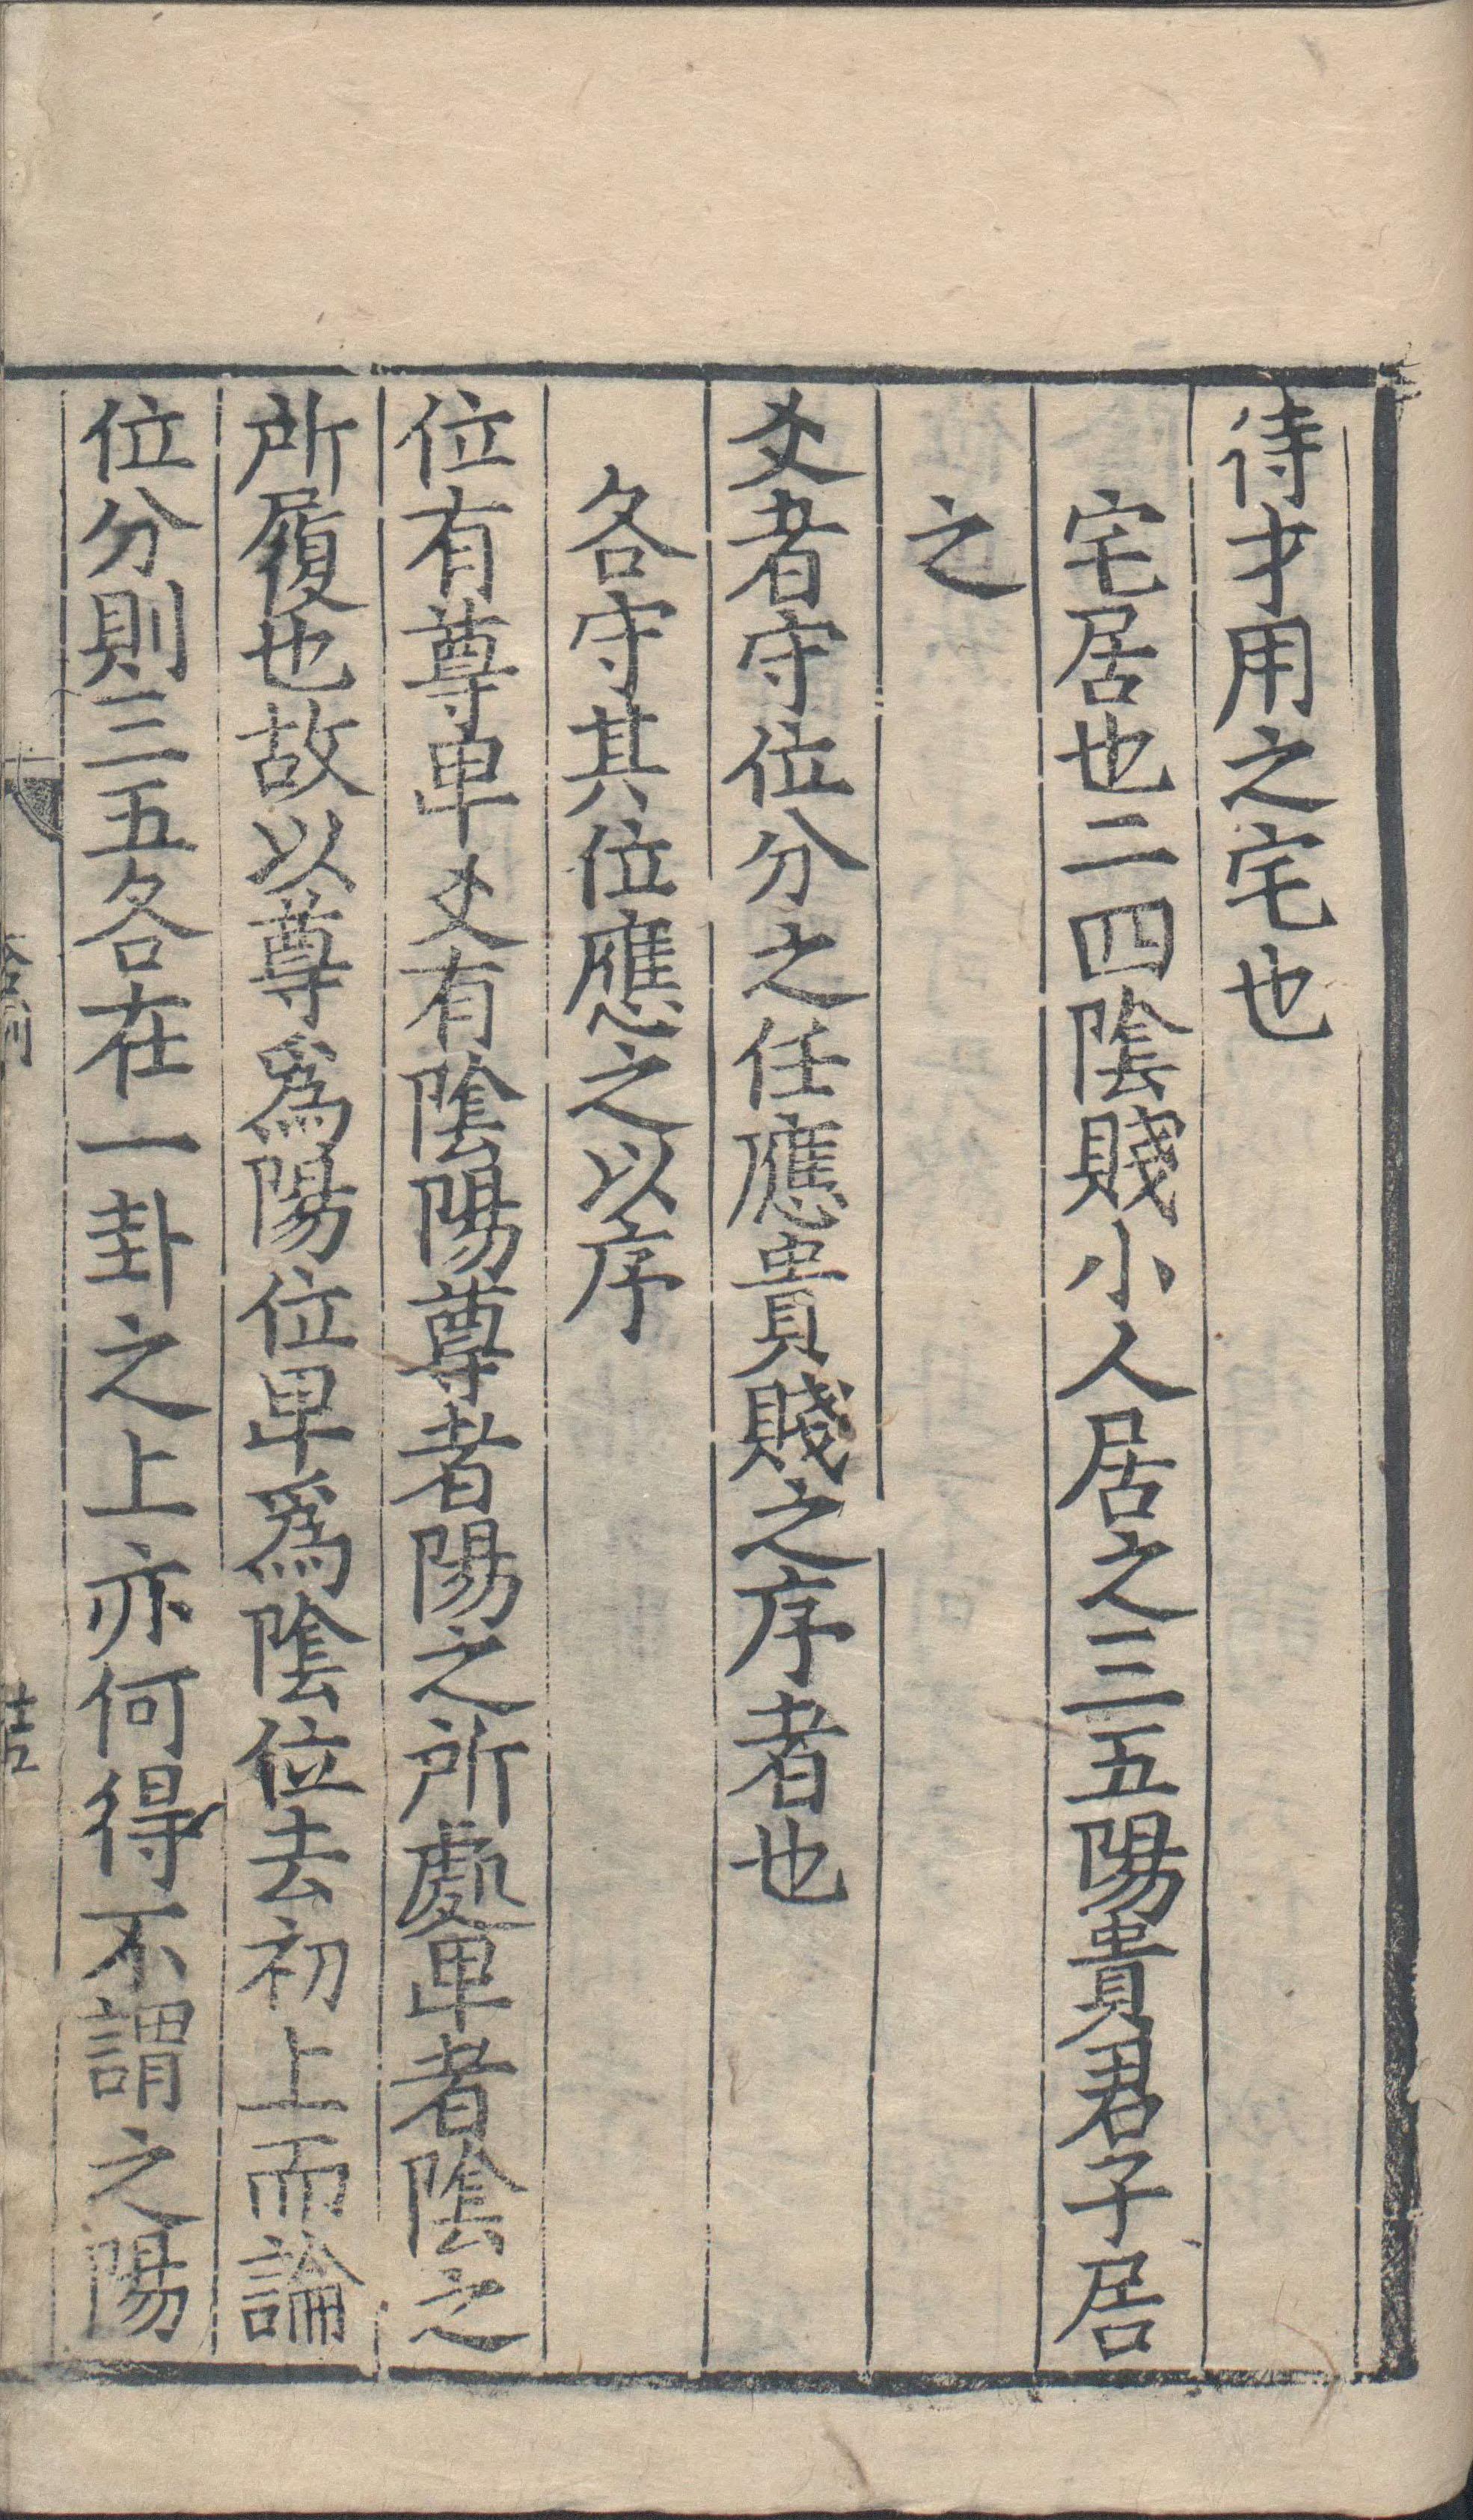 待才用之宅也
宅居也二四隂賤小人居之三五陽貴君子居
之
爻者守位分之任應貴賤之序者也
各守其位應之以序
位有尊卑爻有隂陽尊者陽之所處卑者隂之
所履也故以尊爲陽位卑爲隂位去初上而論
位分則三五各在一卦之上亦何得不謂之陽